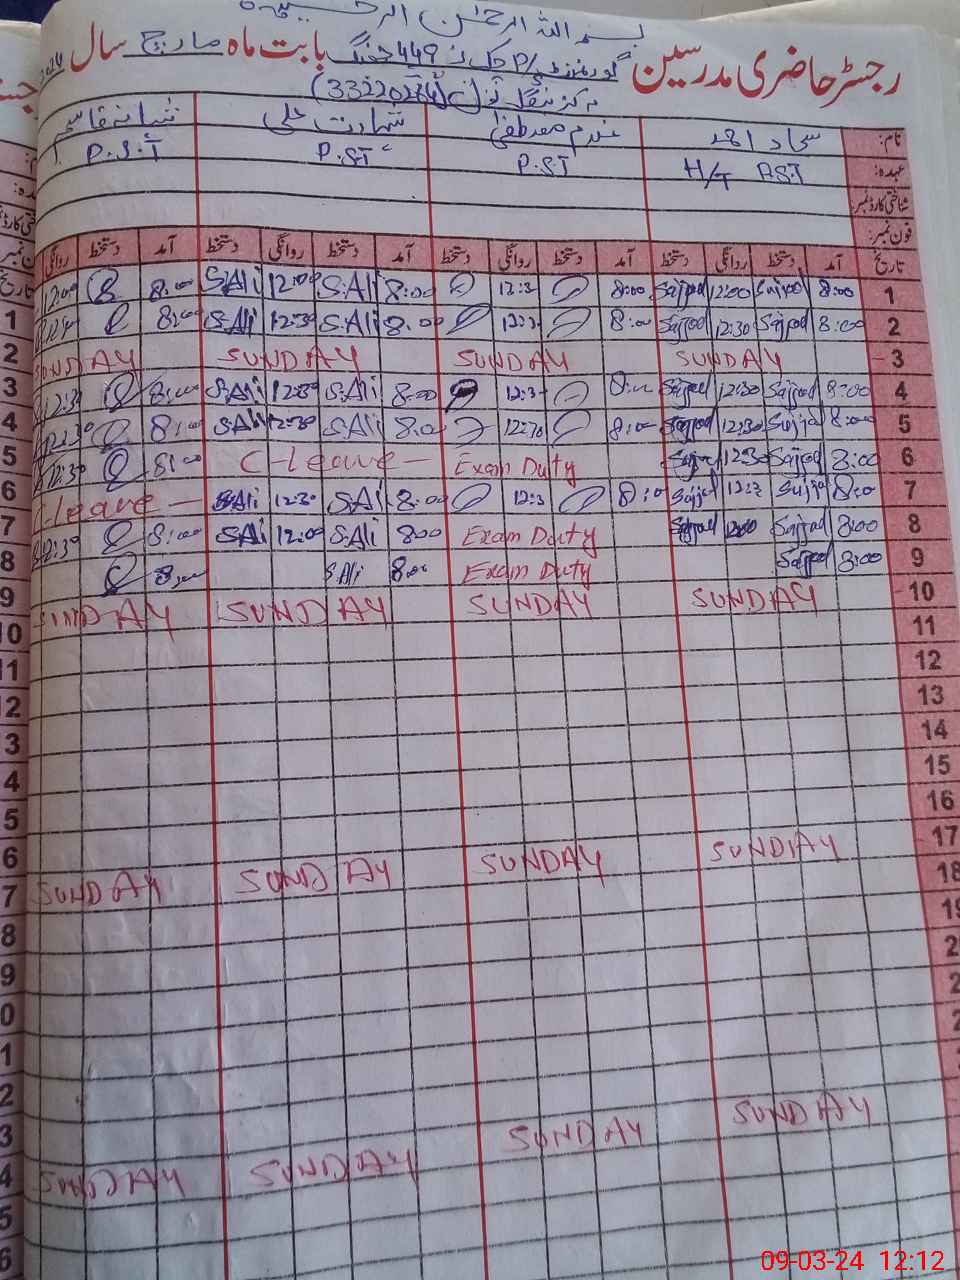 بسم اللہ الرحمٰن الرحیم
رجسٹر حاضری مدرسین گورنمنٹ P/S چک نمبر 449 جھنگ بابت ماہ مارچ سال 2024
مرکز منگلا نول (33220274)
نام: سجاد احمد غلام مصطفیٰ شہادت علی شبانہ قاسم
عہدہ: H/T PST P.S.T P.S.T P.S.T
شناختی کارڈ نمبر:
فون نمبر:
تاریخ آمد دستخط روانگی دستخط آمد دستخط روانگی دستخط آمد دستخط روانگی دستخط آمد دستخط روانگی
1 8:00 Sajjad 12:00 Sajjad 8:00 12:3 8:00 S.Ali 12:00 S.Ali 8:00 12:00
2 8:00 Sajjad 12:30 Sajjad 8:00 8:00 S.Ali 12:30 S.Ali 8:00
3 SUNDAY SUNDAY SUNDAY SUNDAY
4 8:00 Sajjad 12:30 Sajjad 8:00 12:3 8:00 S.Ali 12:30 S.Ali 8:00 12:30
5 8:00 Sajjad 12:30 Sajjad 8:00 8:00 S.Ali 12:30 S.Ali 8:00 12:30
6 8:00 Sajjad 12:30 Sajjad Exam Duty C-Leave- 8:00 12:30
7 8:0 Sajjad Sajjad 8:0 12:3 8:00 S.Ali 12:30 S.Ali C-Leave-
8 8:00 Sajjad 12:00 Sajjad Exam Duty 8:00 S.Ali 12:00 S.Ali 8:00 12:30
9 8:00 Sajjad Exam Duty 8:00 S.Ali 8:00
10 SUNDAY SUNDAY SUNDAY SUNDAY
11
12
13
14
15
16
17 SUNDAY SUNDAY SUNDAY SUNDAY
18
SUNDAY SUNDAY SUNDAY SUNDAY
09-03-24 12:12